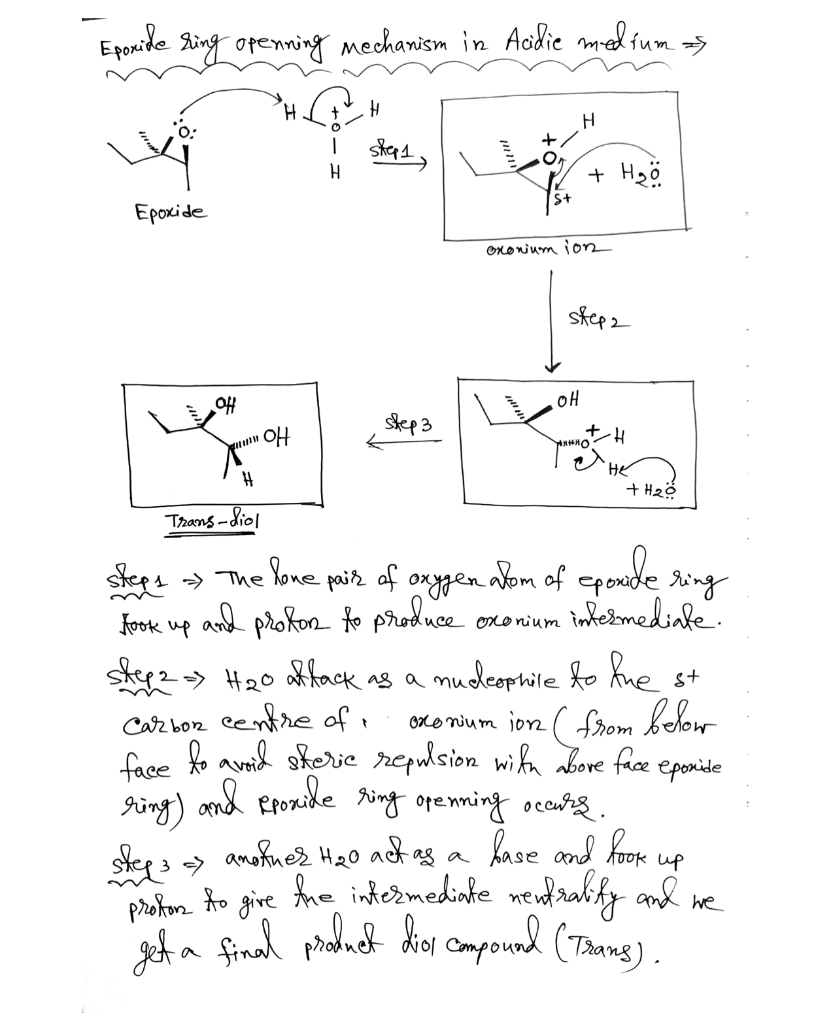 Epoxide ring openning mechanism in Acidic medium ⇒
H + H
:O: O
H
step 1
Epoxide
+ H
O
+ H2Ö:
s+
oxonium ion
step 2
OH
OH
H
Trans-diol
step 3
OH
+
O H
H
+ H2Ö
step 1 ⇒ The lone pair of oxygen atom of epoxide ring
took up and proton to produce oxonium intermediate.
step 2 ⇒ H2O attack as a nucleophile to the s+
carbon centre of oxonium ion (from below
face to avoid steric repulsion with above face epoxide
ring) and epoxide ring openning occurs.
step 3 ⇒ another H2O act as a base and took up
proton to give the intermediate neutrality and we
get a final product diol compound (Trans).